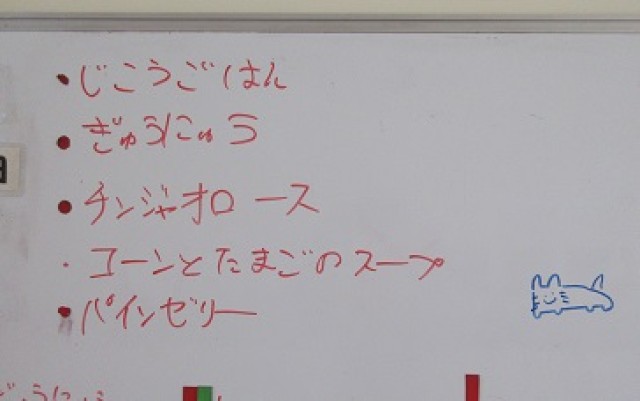 ・じこうごはん
・ぎゅうにゅう
・チンジャオロース
・コーンとたまごのスープ
・パインゼリー